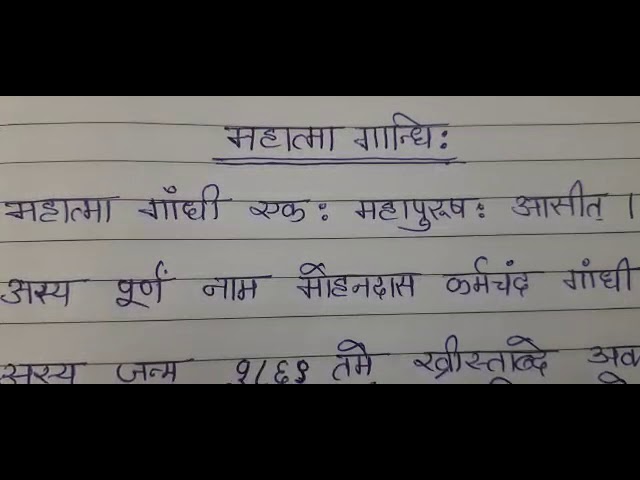 महात्मा गान्धि:
महात्मा गाँधी एक: महापुरूष: आसीत् ।
अस्य पूर्ण नाम मोहनदास कर्मचंद गांधी
अस्य जन्म १८६९ तमे ख्रीस्ताब्दे